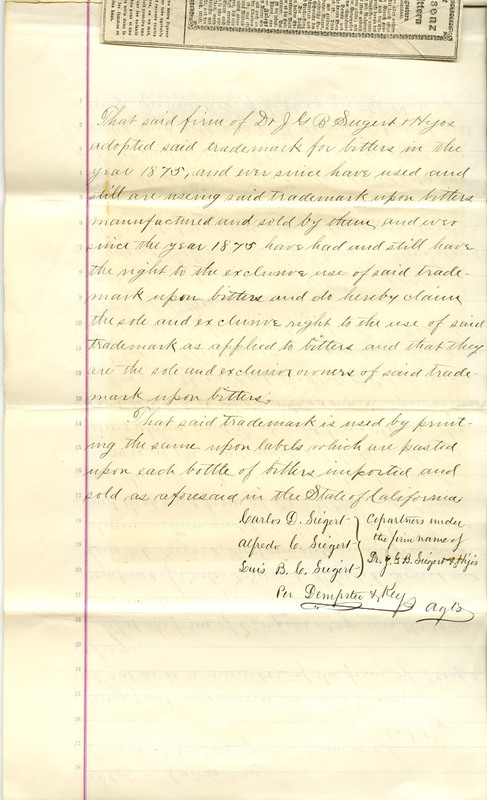 That said firm of Dr J G B Siegert & Hijos
adopted said trademark for bitters in the
year 1875, and ever since have used and
still are using said trademark upon bitters
manufactured and sold by them, and ever
since the year 1875 have had and still have
the right to the exclusive use of said trade-
mark upon bitters and do hereby claim
the sole and exclusive right to the use of said
trademark as applied to bitters and that they
are the sole and exclusive owners of said trade-
mark upon bitters.
That said trademark is used by print-
ing the same upon labels which are pasted
upon each bottle of bitters imported and
sold as aforesaid in the State of California
Carlos D. Siegert
Alfredo C. Siegert
Luis B. C. Siegert
Copartners under
the firm name of
Dr. J. G. B. Siegert & Hijos
Per Dempster & Key
Agts